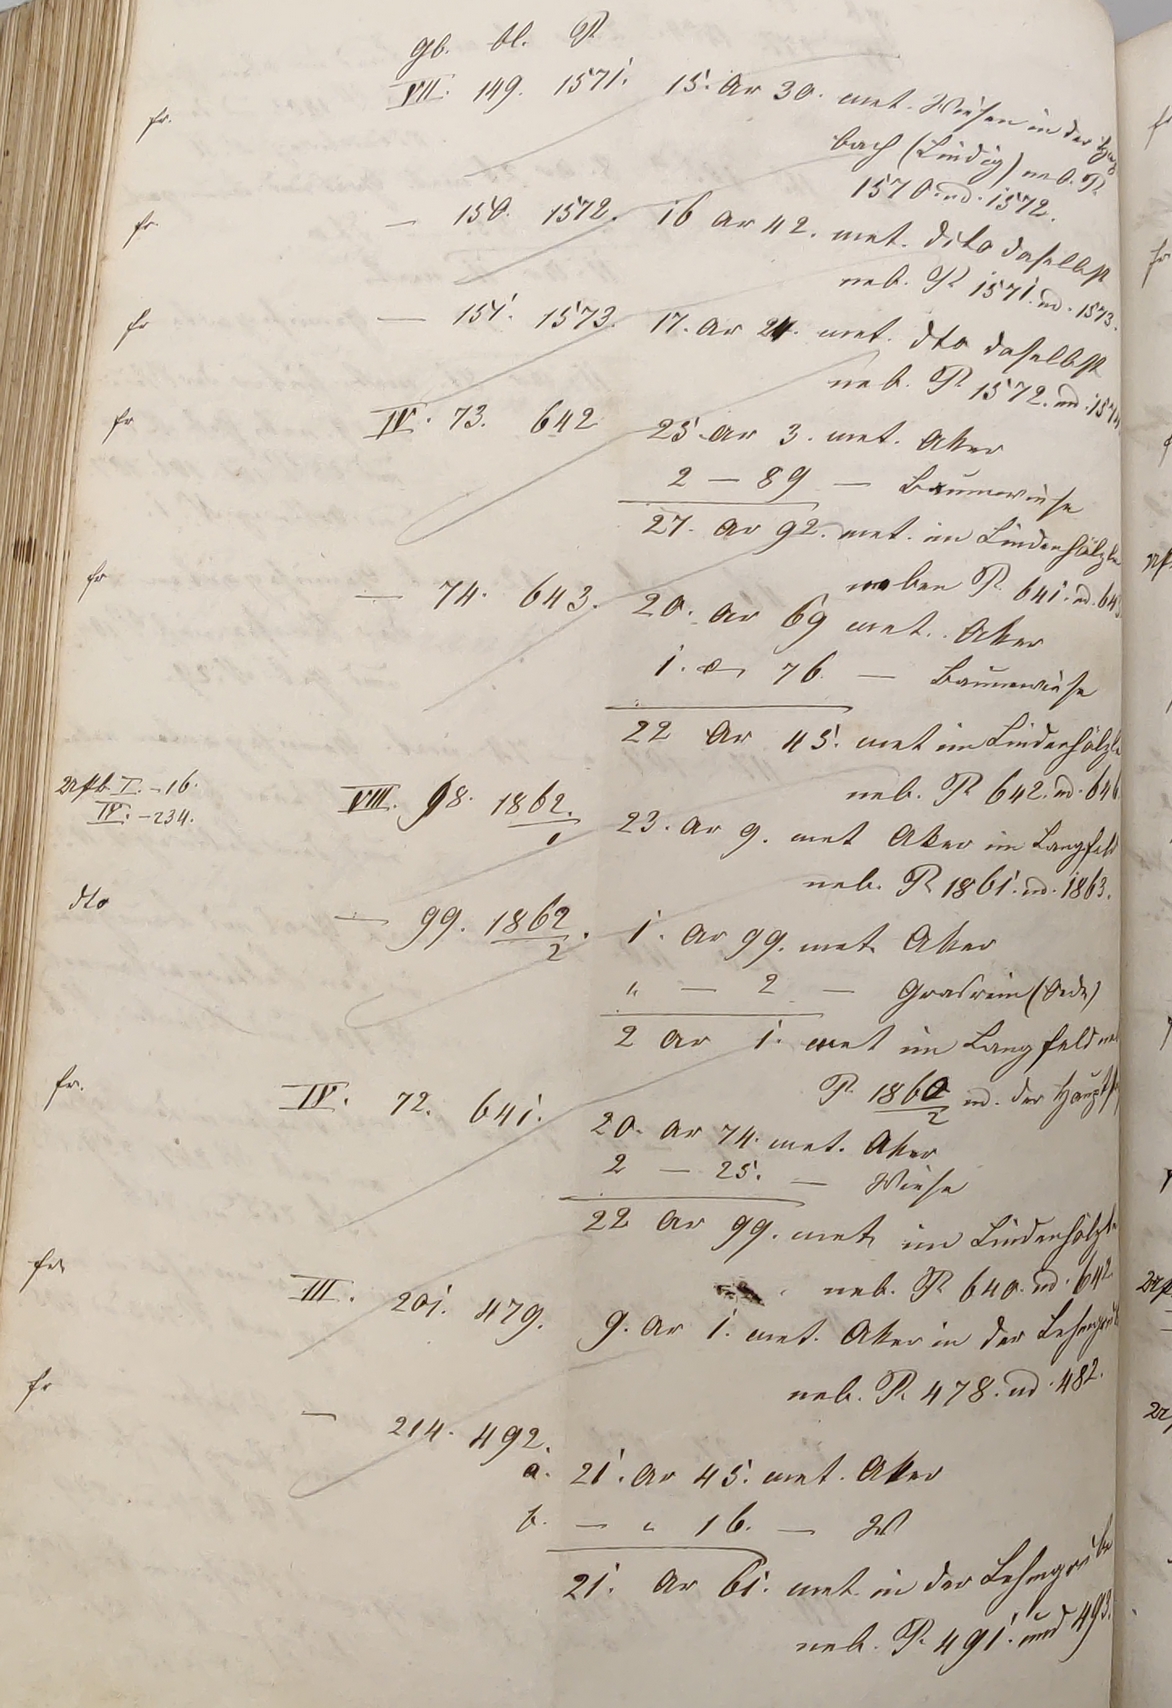 Gb. Bl. P.
fr. VII. 149. 1571. 15. Ar 30. met. Wiesen in der
bach (Lindig) neb. P.
1570. nd. 1572.
fr. — 150. 1572. 16 Ar 42. met. dito daselbst
neb. P. 1571. nd. 1573.
fr — 151. 1573. 17. Ar 24. met. dto daselbst
neb. P. 1572. nd. 1574
fr IV. 73. 642 25 Ar 3. met. Aker
2 — 89 — Baumwiese
27. Ar 92. met. im Lindenhölzle
neben P. 641. nd. 643
fr — 74. 643. 20. Ar 69 met. Aker
1. — 76. — Baumwiese
22 Ar 45. met im Lindenhölzle
neb. P. 642. nd. 646
Urfb. I. - 16. VIII. 98. 1862./1 23. Ar 9. met Aker im Langfeld
IV. - 234.
neb. P. 1861. nd. 1863.
dto — 99. 1862/2. 1. Ar 99. met. Aker
" — 2 — Grasrein (Oede)
2 Ar 1. met im Langfeld neb
P. 1860/2 nd. der
fr. IV. 72. 641. 20. Ar 74. met. Aker
2 — 25. — Wiese
22 Ar 99. met. im Lindenhölzle
neb. P. 640. nd. 642
fr. III. 201. 479. 9. Ar 1. met. Aker in der
neb. P. 478. nd. 482.
fr — 214. 492.
a. 21. Ar 45. met. Aker
b. — " 16. — W
21. Ar 61. met. in der Lehmgrube
neb. P. 491. und 493.